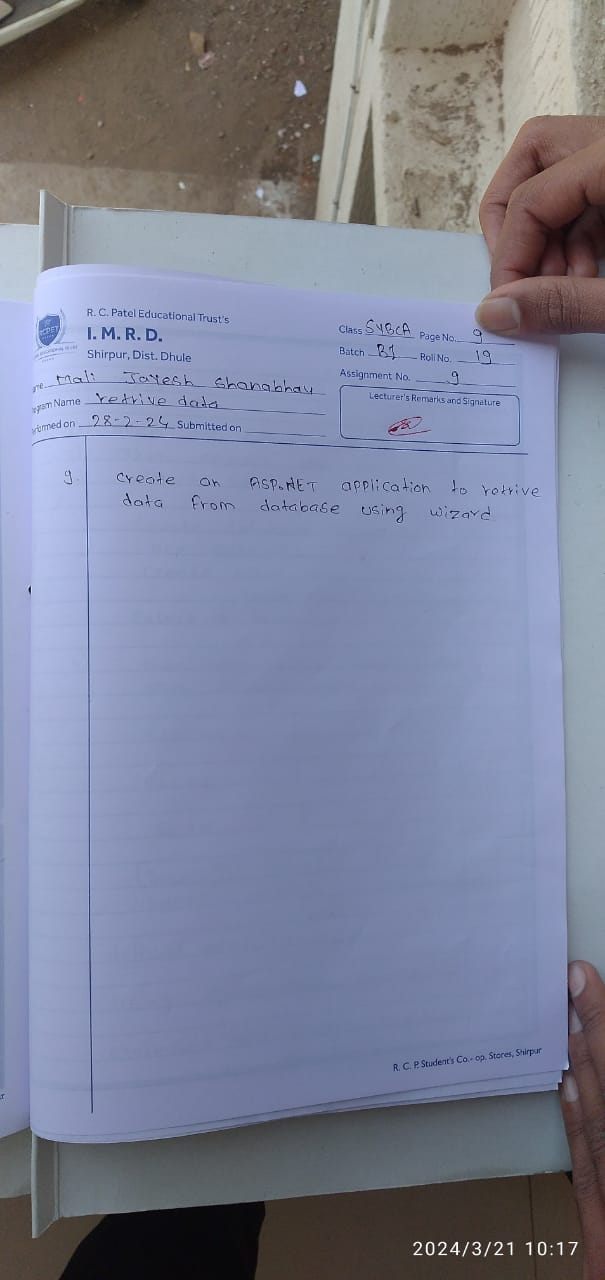 R. C. Patel Educational Trust's
I. M. R. D.
Shirpur, Dist. Dhule
Class SYBCA Page No. 9
Batch B1 Roll No. 19
Assignment No. 9
Mali Jayesh Ghanabhau
Name retrive data
28-2-24 Submitted on
Lecturer's Remarks and Signature
9. create an ASP.NET application to retrive
data from database using wizard
R. C. P. Student's Co.- op. Stores, Shirpur
2024/3/21 10:17